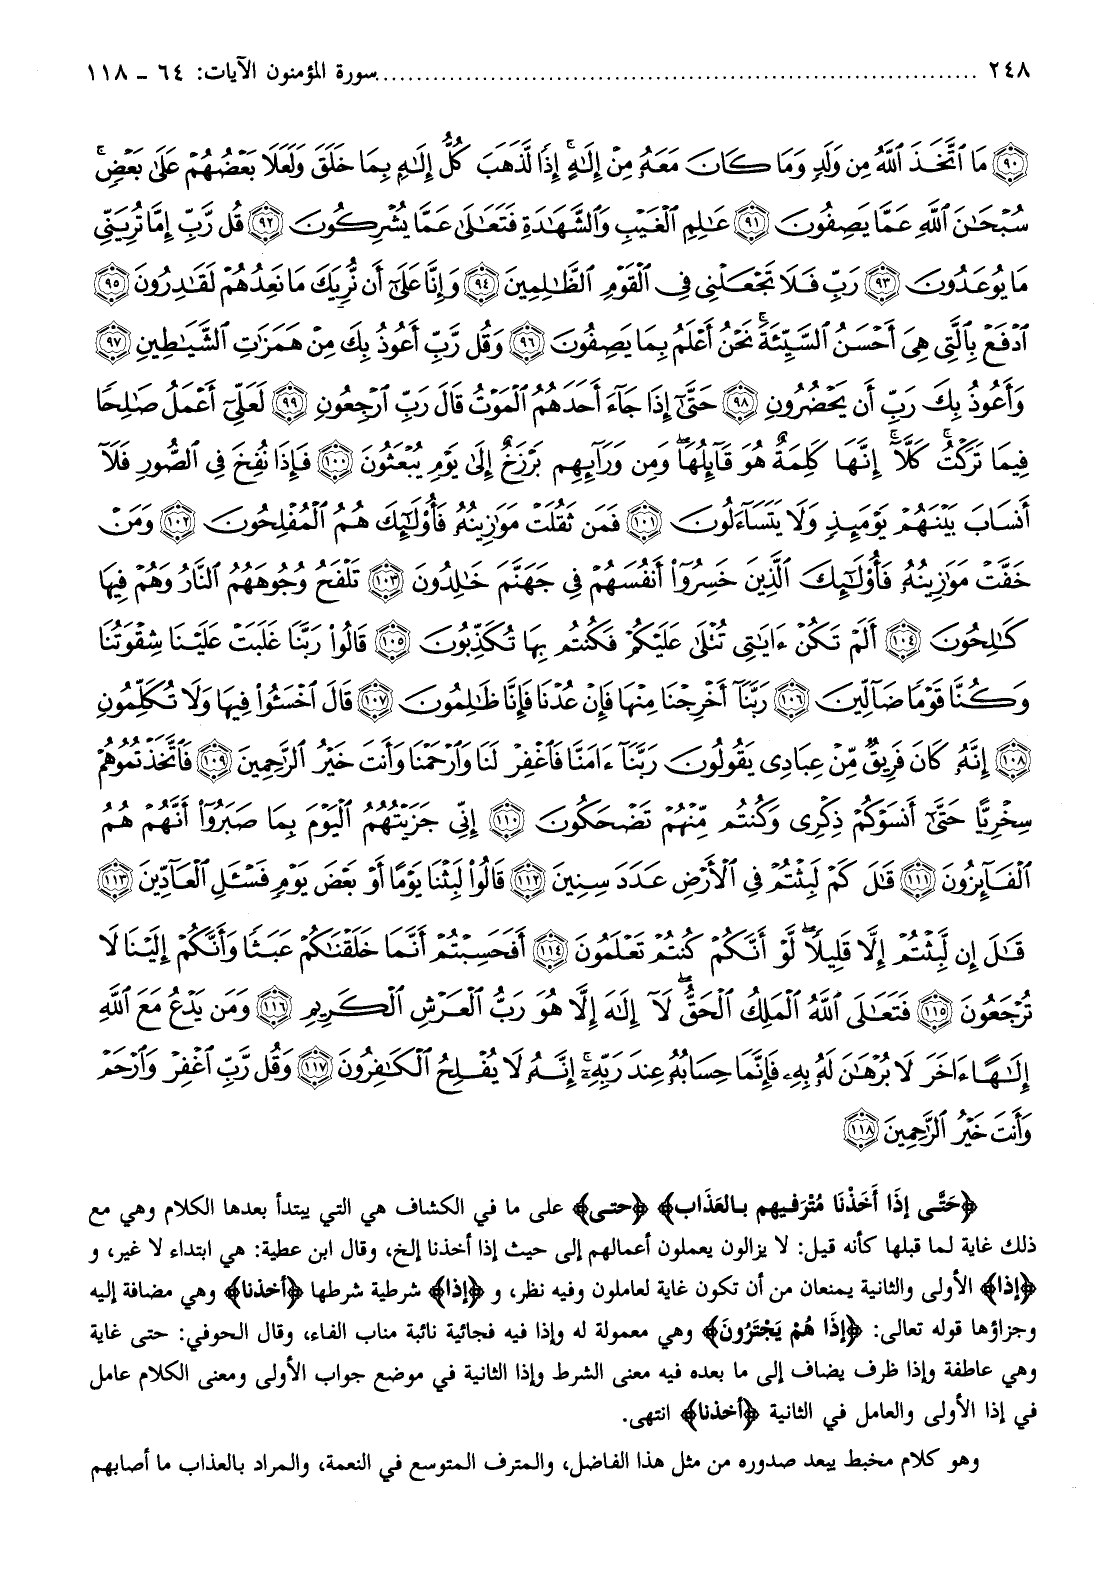 ٢٤٨ ........................................................................ سورة المؤمنون الآيات: ٦٤ - ١١٨
﴿٩٠﴾ مَا ٱتَّخَذَ ٱللَّهُ مِن وَلَدٍ وَمَا كَانَ مَعَهُ مِنْ إِلَٰهٍ ۚ إِذًا لَّذَهَبَ كُلُّ إِلَٰهٍ بِمَا خَلَقَ وَلَعَلَا بَعْضُهُمْ عَلَىٰ بَعْضٍ ۚ
سُبْحَٰنَ ٱللَّهِ عَمَّا يَصِفُونَ ﴿٩١﴾ عَٰلِمِ ٱلْغَيْبِ وَٱلشَّهَٰدَةِ فَتَعَٰلَىٰ عَمَّا يُشْرِكُونَ ﴿٩٢﴾ قُل رَّبِّ إِمَّا تُرِيَنِّى
مَا يُوعَدُونَ ﴿٩٣﴾ رَبِّ فَلَا تَجْعَلْنِى فِى ٱلْقَوْمِ ٱلظَّٰلِمِينَ ﴿٩٤﴾ وَإِنَّا عَلَىٰٓ أَن نُّرِيَكَ مَا نَعِدُهُمْ لَقَٰدِرُونَ ﴿٩٥﴾
ٱدْفَعْ بِٱلَّتِى هِىَ أَحْسَنُ ٱلسَّيِّئَةَ ۚ نَحْنُ أَعْلَمُ بِمَا يَصِفُونَ ﴿٩٦﴾ وَقُل رَّبِّ أَعُوذُ بِكَ مِنْ هَمَزَٰتِ ٱلشَّيَٰطِينِ ﴿٩٧﴾
وَأَعُوذُ بِكَ رَبِّ أَن يَحْضُرُونِ ﴿٩٨﴾ حَتَّىٰٓ إِذَا جَآءَ أَحَدَهُمُ ٱلْمَوْتُ قَالَ رَبِّ ٱرْجِعُونِ ﴿٩٩﴾ لَعَلِّىٓ أَعْمَلُ صَٰلِحًا
فِيمَا تَرَكْتُ ۚ كَلَّآ ۚ إِنَّهَا كَلِمَةٌ هُوَ قَآئِلُهَا ۖ وَمِن وَرَآئِهِم بَرْزَخٌ إِلَىٰ يَوْمِ يُبْعَثُونَ ﴿١٠٠﴾ فَإِذَا نُفِخَ فِى ٱلصُّورِ فَلَآ
أَنسَابَ بَيْنَهُمْ يَوْمَئِذٍ وَلَا يَتَسَآءَلُونَ ﴿١٠١﴾ فَمَن ثَقُلَتْ مَوَٰزِينُهُۥ فَأُو۟لَٰٓئِكَ هُمُ ٱلْمُفْلِحُونَ ﴿١٠٢﴾ وَمَنْ
خَفَّتْ مَوَٰزِينُهُۥ فَأُو۟لَٰٓئِكَ ٱلَّذِينَ خَسِرُوٓا۟ أَنفُسَهُمْ فِى جَهَنَّمَ خَٰلِدُونَ ﴿١٠٣﴾ تَلْفَحُ وُجُوهَهُمُ ٱلنَّارُ وَهُمْ فِيهَا
كَٰلِحُونَ ﴿١٠٤﴾ أَلَمْ تَكُنْ ءَايَٰتِى تُتْلَىٰ عَلَيْكُمْ فَكُنتُم بِهَا تُكَذِّبُونَ ﴿١٠٥﴾ قَالُوا۟ رَبَّنَا غَلَبَتْ عَلَيْنَا شِقْوَتُنَا
وَكُنَّا قَوْمًا ضَآلِّينَ ﴿١٠٦﴾ رَبَّنَآ أَخْرِجْنَا مِنْهَا فَإِنْ عُدْنَا فَإِنَّا ظَٰلِمُونَ ﴿١٠٧﴾ قَالَ ٱخْسَـُٔوا۟ فِيهَا وَلَا تُكَلِّمُونِ
﴿١٠٨﴾ إِنَّهُۥ كَانَ فَرِيقٌ مِّنْ عِبَادِى يَقُولُونَ رَبَّنَآ ءَامَنَّا فَٱغْفِرْ لَنَا وَٱرْحَمْنَا وَأَنتَ خَيْرُ ٱلرَّٰحِمِينَ ﴿١٠٩﴾ فَٱتَّخَذْتُمُوهُمْ
سِخْرِيًّا حَتَّىٰٓ أَنسَوْكُمْ ذِكْرِى وَكُنتُم مِّنْهُمْ تَضْحَكُونَ ﴿١١٠﴾ إِنِّى جَزَيْتُهُمُ ٱلْيَوْمَ بِمَا صَبَرُوٓا۟ أَنَّهُمْ هُمُ
ٱلْفَآئِزُونَ ﴿١١١﴾ قَٰلَ كَمْ لَبِثْتُمْ فِى ٱلْأَرْضِ عَدَدَ سِنِينَ ﴿١١٢﴾ قَالُوا۟ لَبِثْنَا يَوْمًا أَوْ بَعْضَ يَوْمٍ فَسْـَٔلِ ٱلْعَآدِّينَ ﴿١١٣﴾
قَٰلَ إِن لَّبِثْتُمْ إِلَّا قَلِيلًا ۖ لَّوْ أَنَّكُمْ كُنتُمْ تَعْلَمُونَ ﴿١١٤﴾ أَفَحَسِبْتُمْ أَنَّمَا خَلَقْنَٰكُمْ عَبَثًا وَأَنَّكُمْ إِلَيْنَا لَا
تُرْجَعُونَ ﴿١١٥﴾ فَتَعَٰلَى ٱللَّهُ ٱلْمَلِكُ ٱلْحَقُّ ۖ لَآ إِلَٰهَ إِلَّا هُوَ رَبُّ ٱلْعَرْشِ ٱلْكَرِيمِ ﴿١١٦﴾ وَمَن يَدْعُ مَعَ ٱللَّهِ
إِلَٰهًا ءَاخَرَ لَا بُرْهَٰنَ لَهُۥ بِهِۦ فَإِنَّمَا حِسَابُهُۥ عِندَ رَبِّهِۦٓ ۚ إِنَّهُۥ لَا يُفْلِحُ ٱلْكَٰفِرُونَ ﴿١١٧﴾ وَقُل رَّبِّ ٱغْفِرْ وَٱرْحَمْ
وَأَنتَ خَيْرُ ٱلرَّٰحِمِينَ ﴿١١٨﴾
﴿حَتَّى إِذَا أَخَذْنَا مُتْرَفيهم بـالعَذَاب﴾ ﴿حتـى﴾ على ما في الكشاف هي التي يبتدأ بعدها الكلام وهي مع
ذلك غاية لما قبلها كأنه قيل: لا يزالون يعملون أعمالهم إلى حيث إذا أخذنا إلخ، وقال ابن عطية: هي ابتداء لا غير، و
﴿إذا﴾ الأولى والثانية يمنعان من أن تكون غاية لعاملون وفيه نظر، و ﴿إذا﴾ شرطية شرطها ﴿أخذنا﴾ وهي مضافة إليه
وجزاؤها قوله تعالى: ﴿إِذَا هُمْ يَجْتَرُونَ﴾ وهي معمولة له وإذا فيه فجائية نائبة مناب الفاء، وقال الحوفي: حتى غاية
وهي عاطفة وإذا ظرف يضاف إلى ما بعده فيه معنى الشرط وإذا الثانية في موضع جواب الأولى ومعنى الكلام عامل
في إذا الأولى والعامل في الثانية ﴿أخذنا﴾ انتهى.
وهو كلام مخبط يبعد صدوره من مثل هذا الفاضل، والمترف المتوسع في النعمة، والمراد بالعذاب ما أصابهم